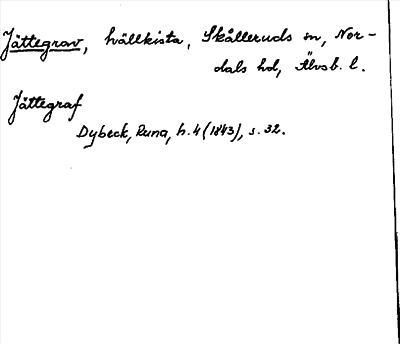 Jättegrav, hällkista, Skålleruds sn, Nor-
dals hd, Älvsb. l.
Jättegraf
Dybeck, Runa, h. 4 (1843), s. 32.